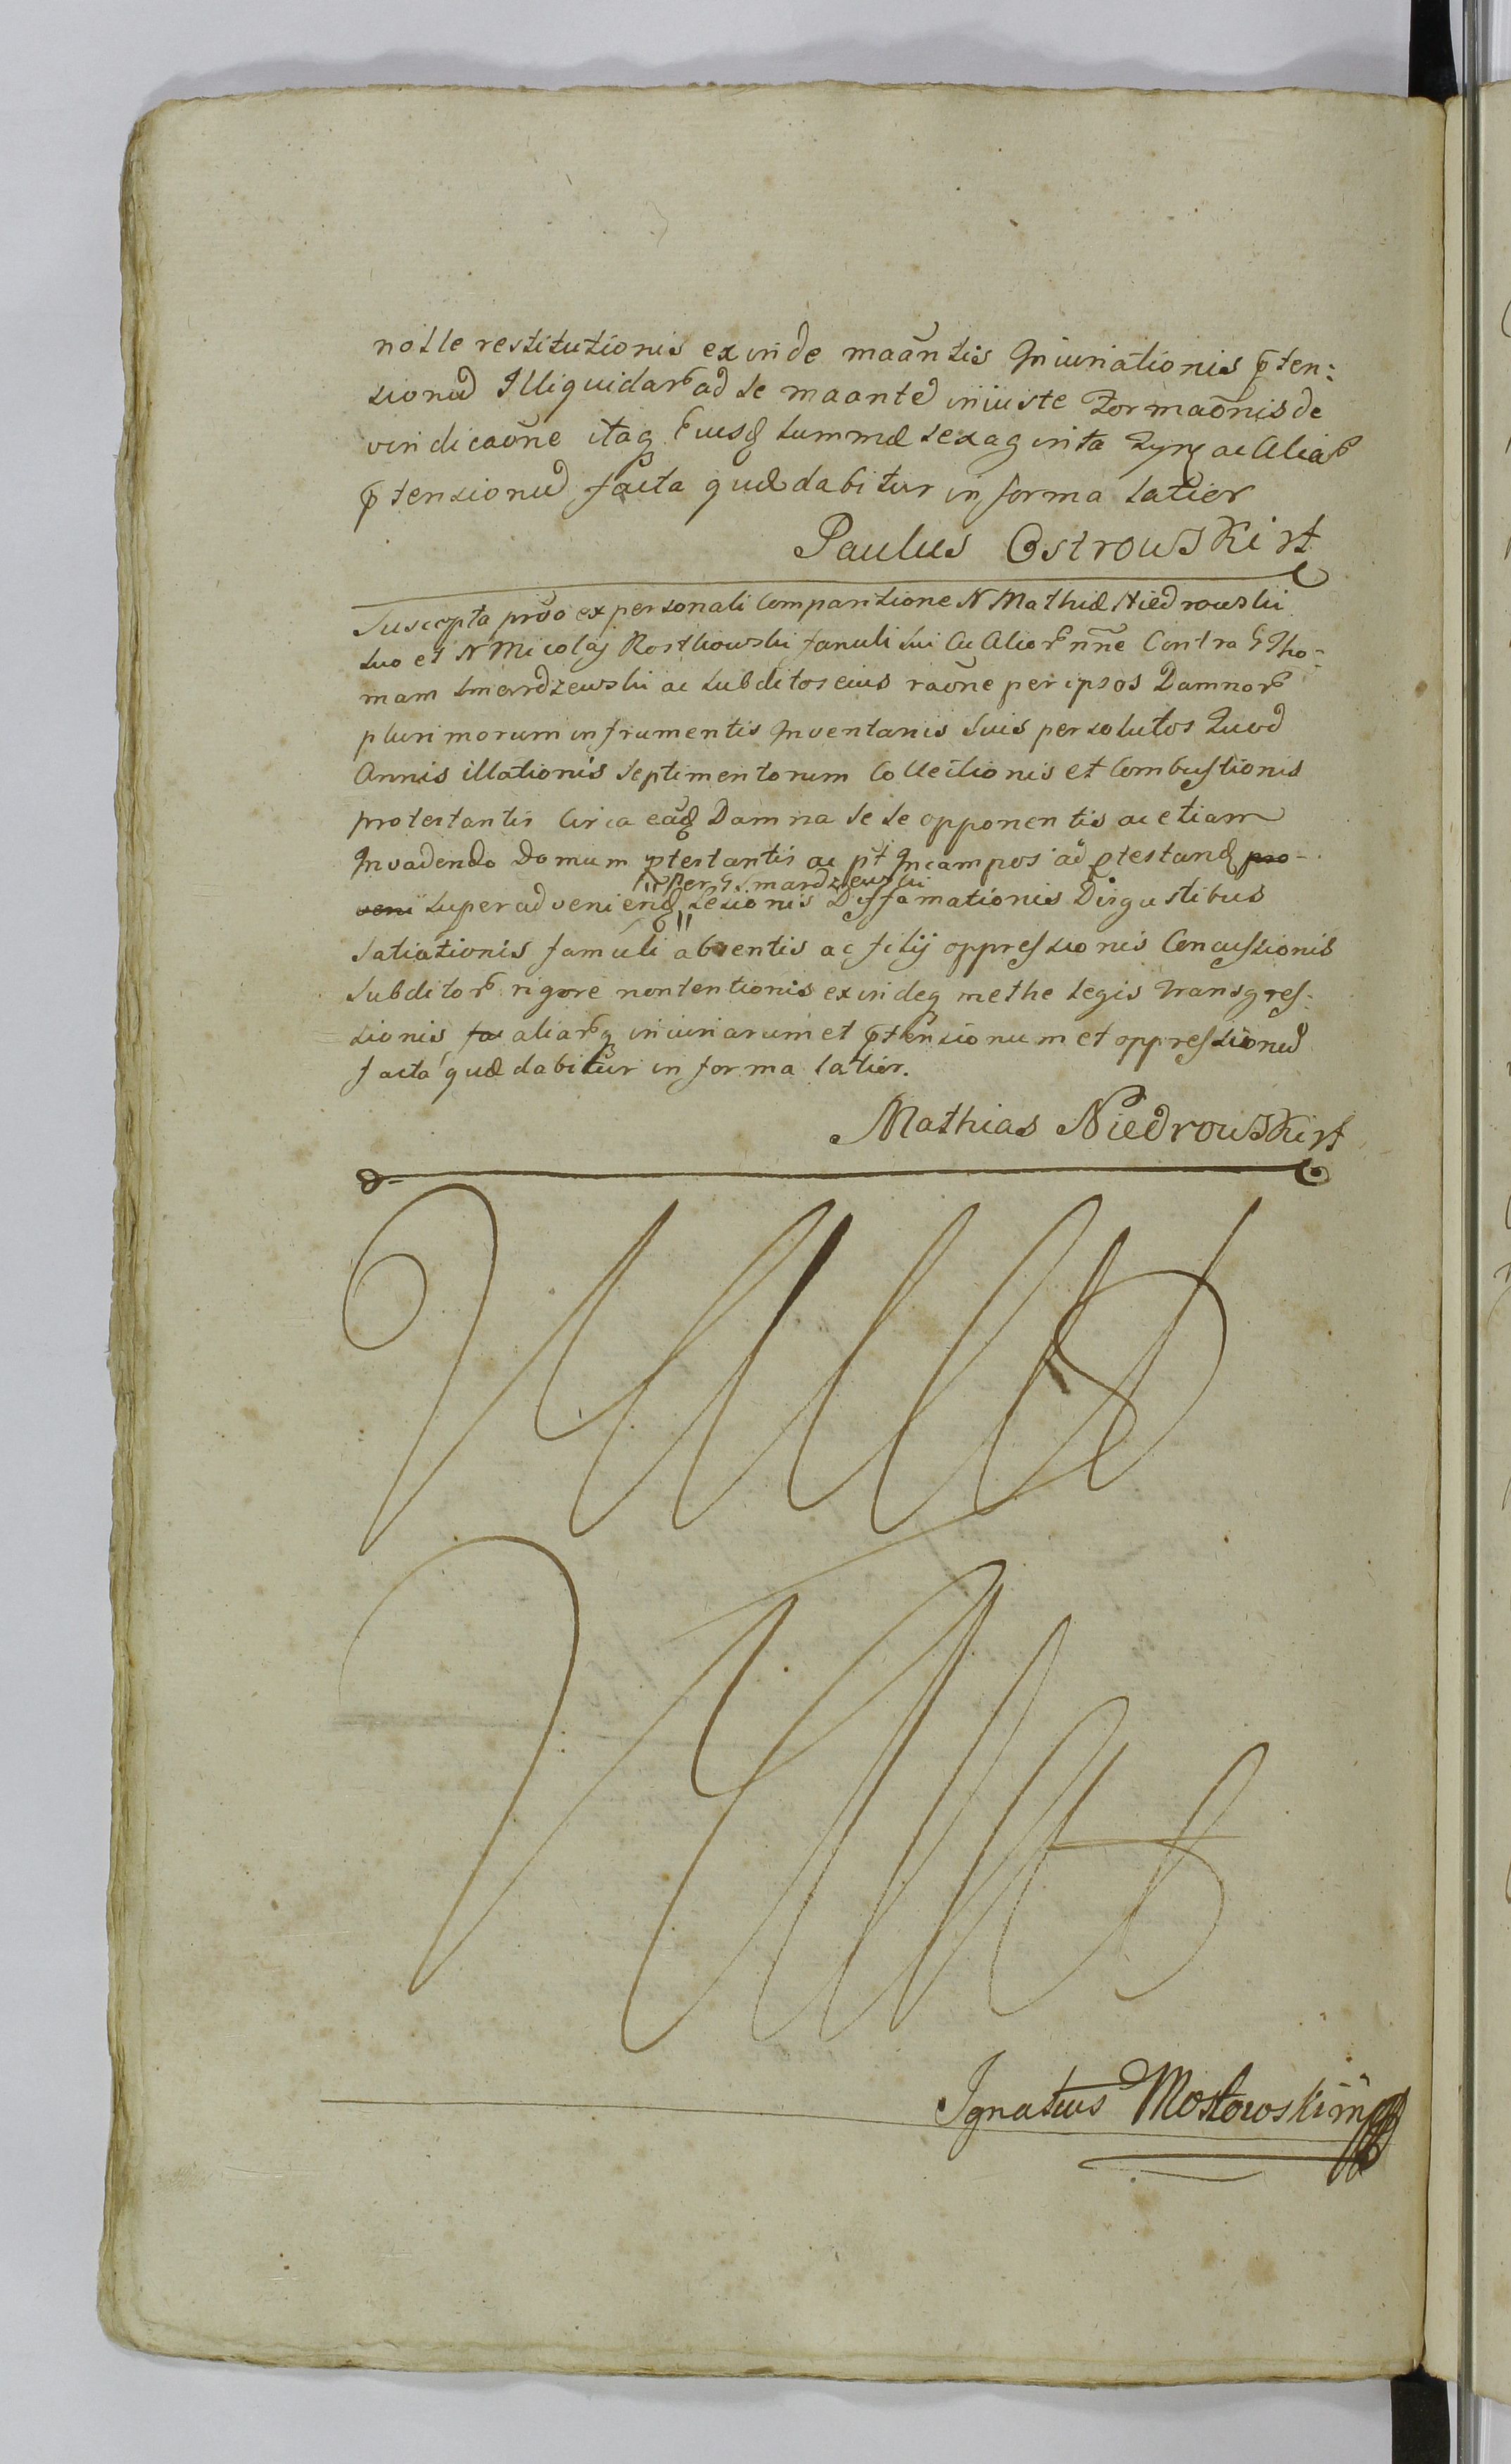 nolle restitutionis exinde maãntis Iniuriationis p̃ten:
sionũ Illiquidarꝫ ad se maantẽ iniuste Formaõnis de
vindicaõne itaq Eiusq summæ sexaginta ac Aliarꝫ
p̃tensionũ facta quæ dabitur in forma latier
Paulus Ostrowski rt
Suscepta prõo ex personali Comparitione N Mathiæ Niedrowski
suo et N Micolaj Rostkowski famuli sui Ac Aliorꝫ nñe Contra G Tho-
mam Smardzewski ac subditos eius raõne per ipsos Damnorꝫ
plurimorum in frumentis Inventariis suis persolutos Quod
Annis illationis septimentorum Collectionis et Combustionis
protestantis Circa eaq Damna se se opponentis ac etiam
Invadendo Domum ptestantis ac pt In campos ad ptestand pro-
per G Smardzewski
veni superadveniend Lesionis Diffamationis Disgustibus
Satiationis famuli absentis ac filij oppressionis Concussionis
Subditorꝫ rigore nontentionis exindeq methe legis transgres-
sionis fa aliarꝫq iniuriarum et p̃tensionum et oppressionũ
facta quæ dabitur in forma latier.
Mathias Niedrowski rt
Ignatius Mostowski mp